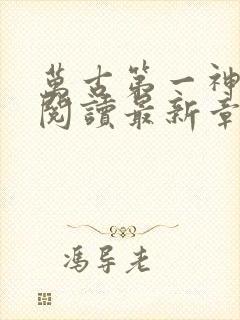 萬古第一神
閱讀最新章
馮导老